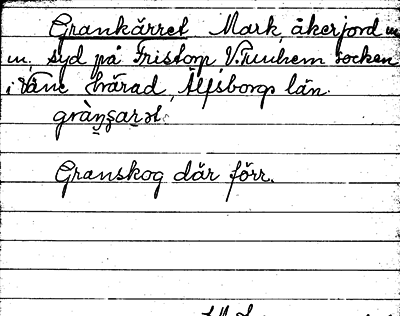 Grankärret Mark, åkerjord m
m, syd på Fristorp V. Tunhem socken
i Väne härad, Älfsborgs län.

Granskog där förr.